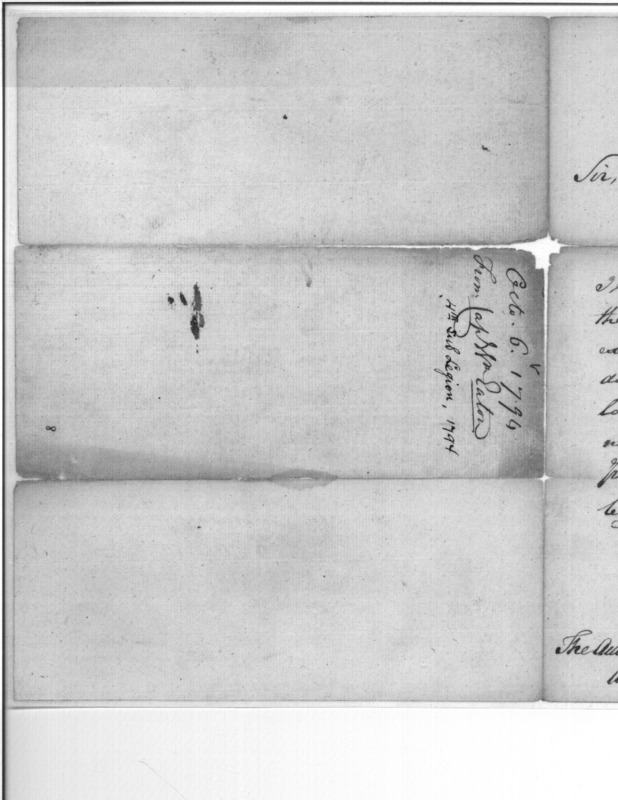 Octo. 6. 1794
From Cap Wm Eaton
4th Sub Legion, 1794
8
Sir,
the
The Au